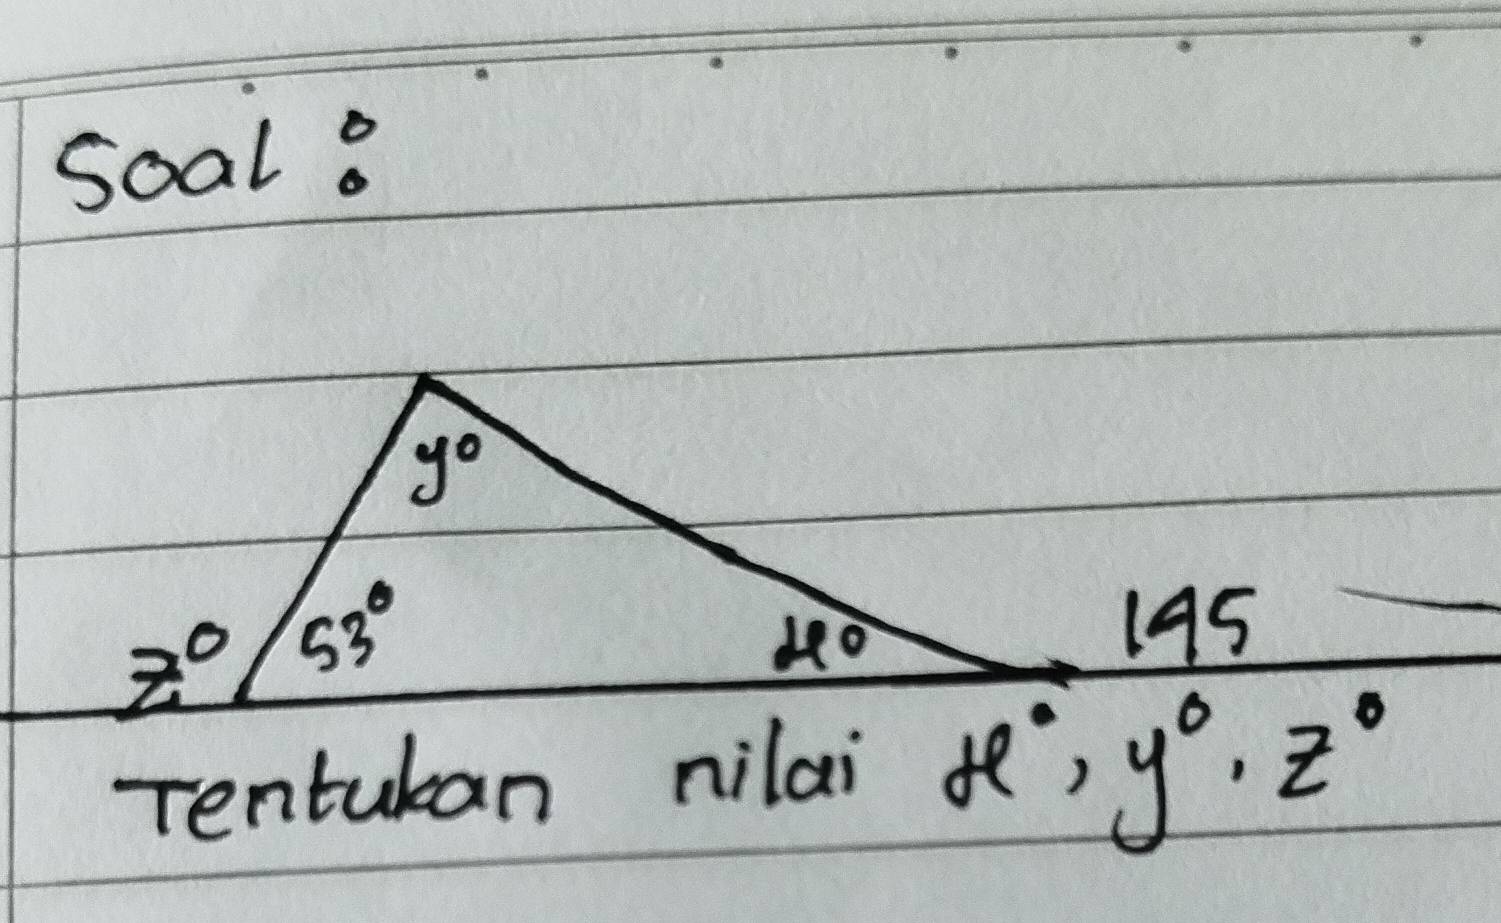 Soal :
y°
53°
x°
z°
145
Tentukan nilai x°, y°, z°